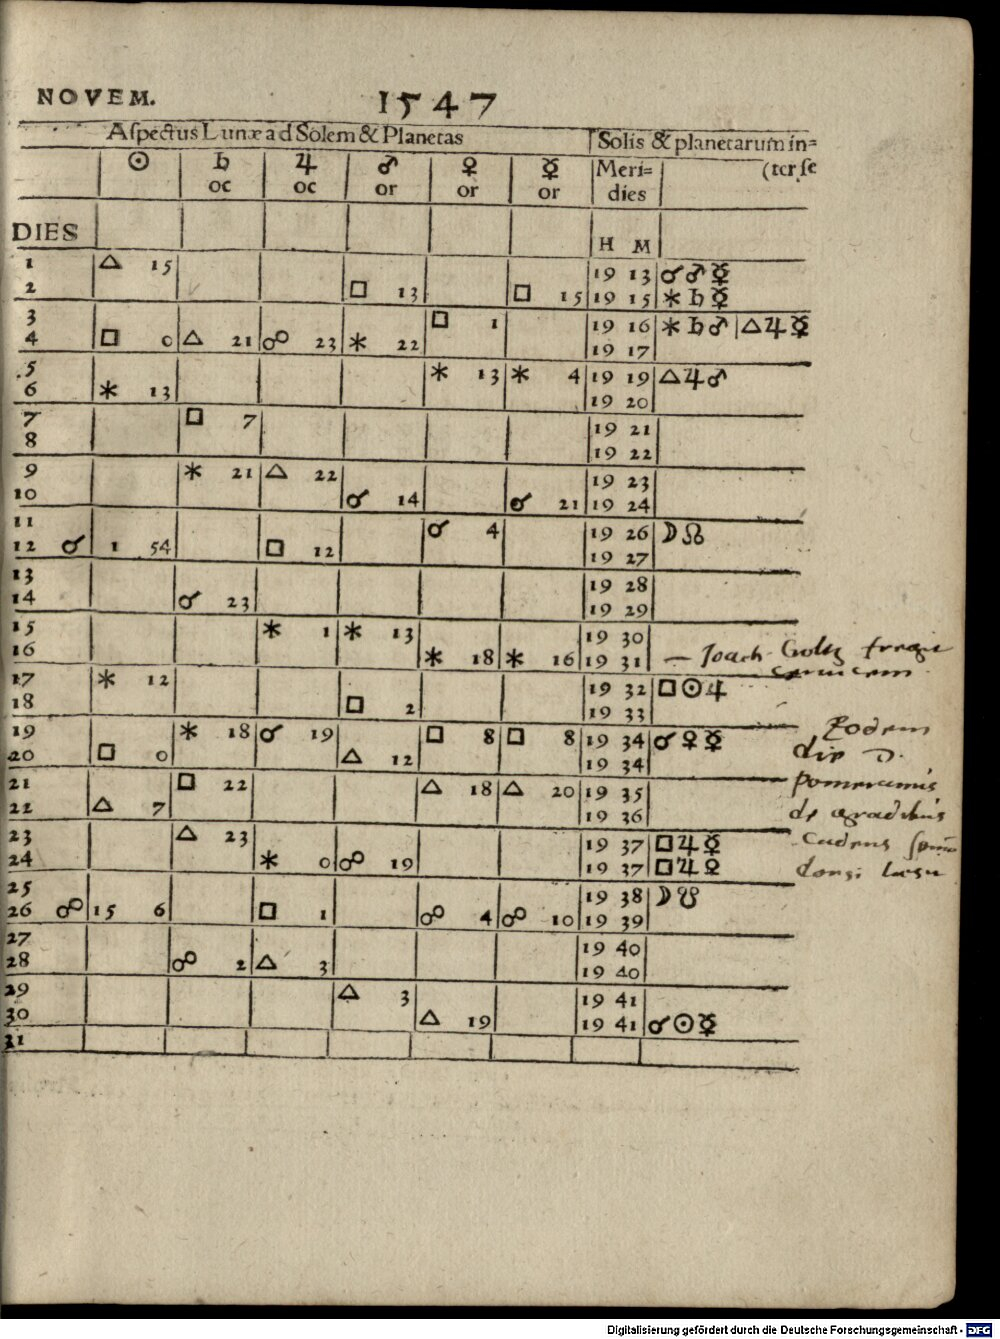 NOVEM. 1547
Aſpectus Lunæ ad Solem & Planetas Solis & planetarum in=
☉ ♄ ♃ ♂ ♀ ☿ Meri= (ter ſe
oc oc or or or dies
DIES H M
1 △ 15 19 13 ☌ ♂ ☿
2 □ 13 □ 15 19 15 ⚹ ♄ ☿
3 □ 1 19 16 ⚹ ♄ ♂ | △ ♃ ☿
4 □ 0 △ 21 ☍ 23 ⚹ 22 19 17
5 ⚹ 13 ⚹ 4 19 19 △ ♃ ♂
6 ⚹ 13 19 20
7 □ 7 19 21
8 19 22
9 ⚹ 21 △ 22 19 23
10 ☌ 14 ☌ 21 19 24
11 ☌ 4 19 26 ☽ ☊
12 ☌ 1 54 □ 12 19 27
13 19 28
14 ☌ 23 19 29
15 ⚹ 1 ⚹ 13 19 30
16 ⚹ 18 ⚹ 16 19 31 — Joach. Goltz
17 ⚹ 12 19 32 □ ☉ ♃
18 □ 2 19 33
19 ⚹ 18 ☌ 19 □ 8 □ 8 19 34 ☌ ♀ ☿
20 □ 0 △ 12 19 34
21 □ 22 △ 18 △ 20 19 35
22 △ 7 19 36
23 △ 23 19 37 □ ♃ ☿
24 ⚹ 0 ☍ 19 19 37 □ ♃ ♀
25 19 38 ☽ ☋
26 ☍ 15 6 □ 1 ☍ 4 ☍ 10 19 39
27 19 40
28 ☍ 2 △ 3 19 40
29 △ 3 19 41
30 △ 19 19 41 ☌ ☉ ☿
31
Eodem
die D.
pomeranus
de gradibus
cadens
Digitalisierung gefördert durch die Deutsche Forschungsgemeinschaft - DFG